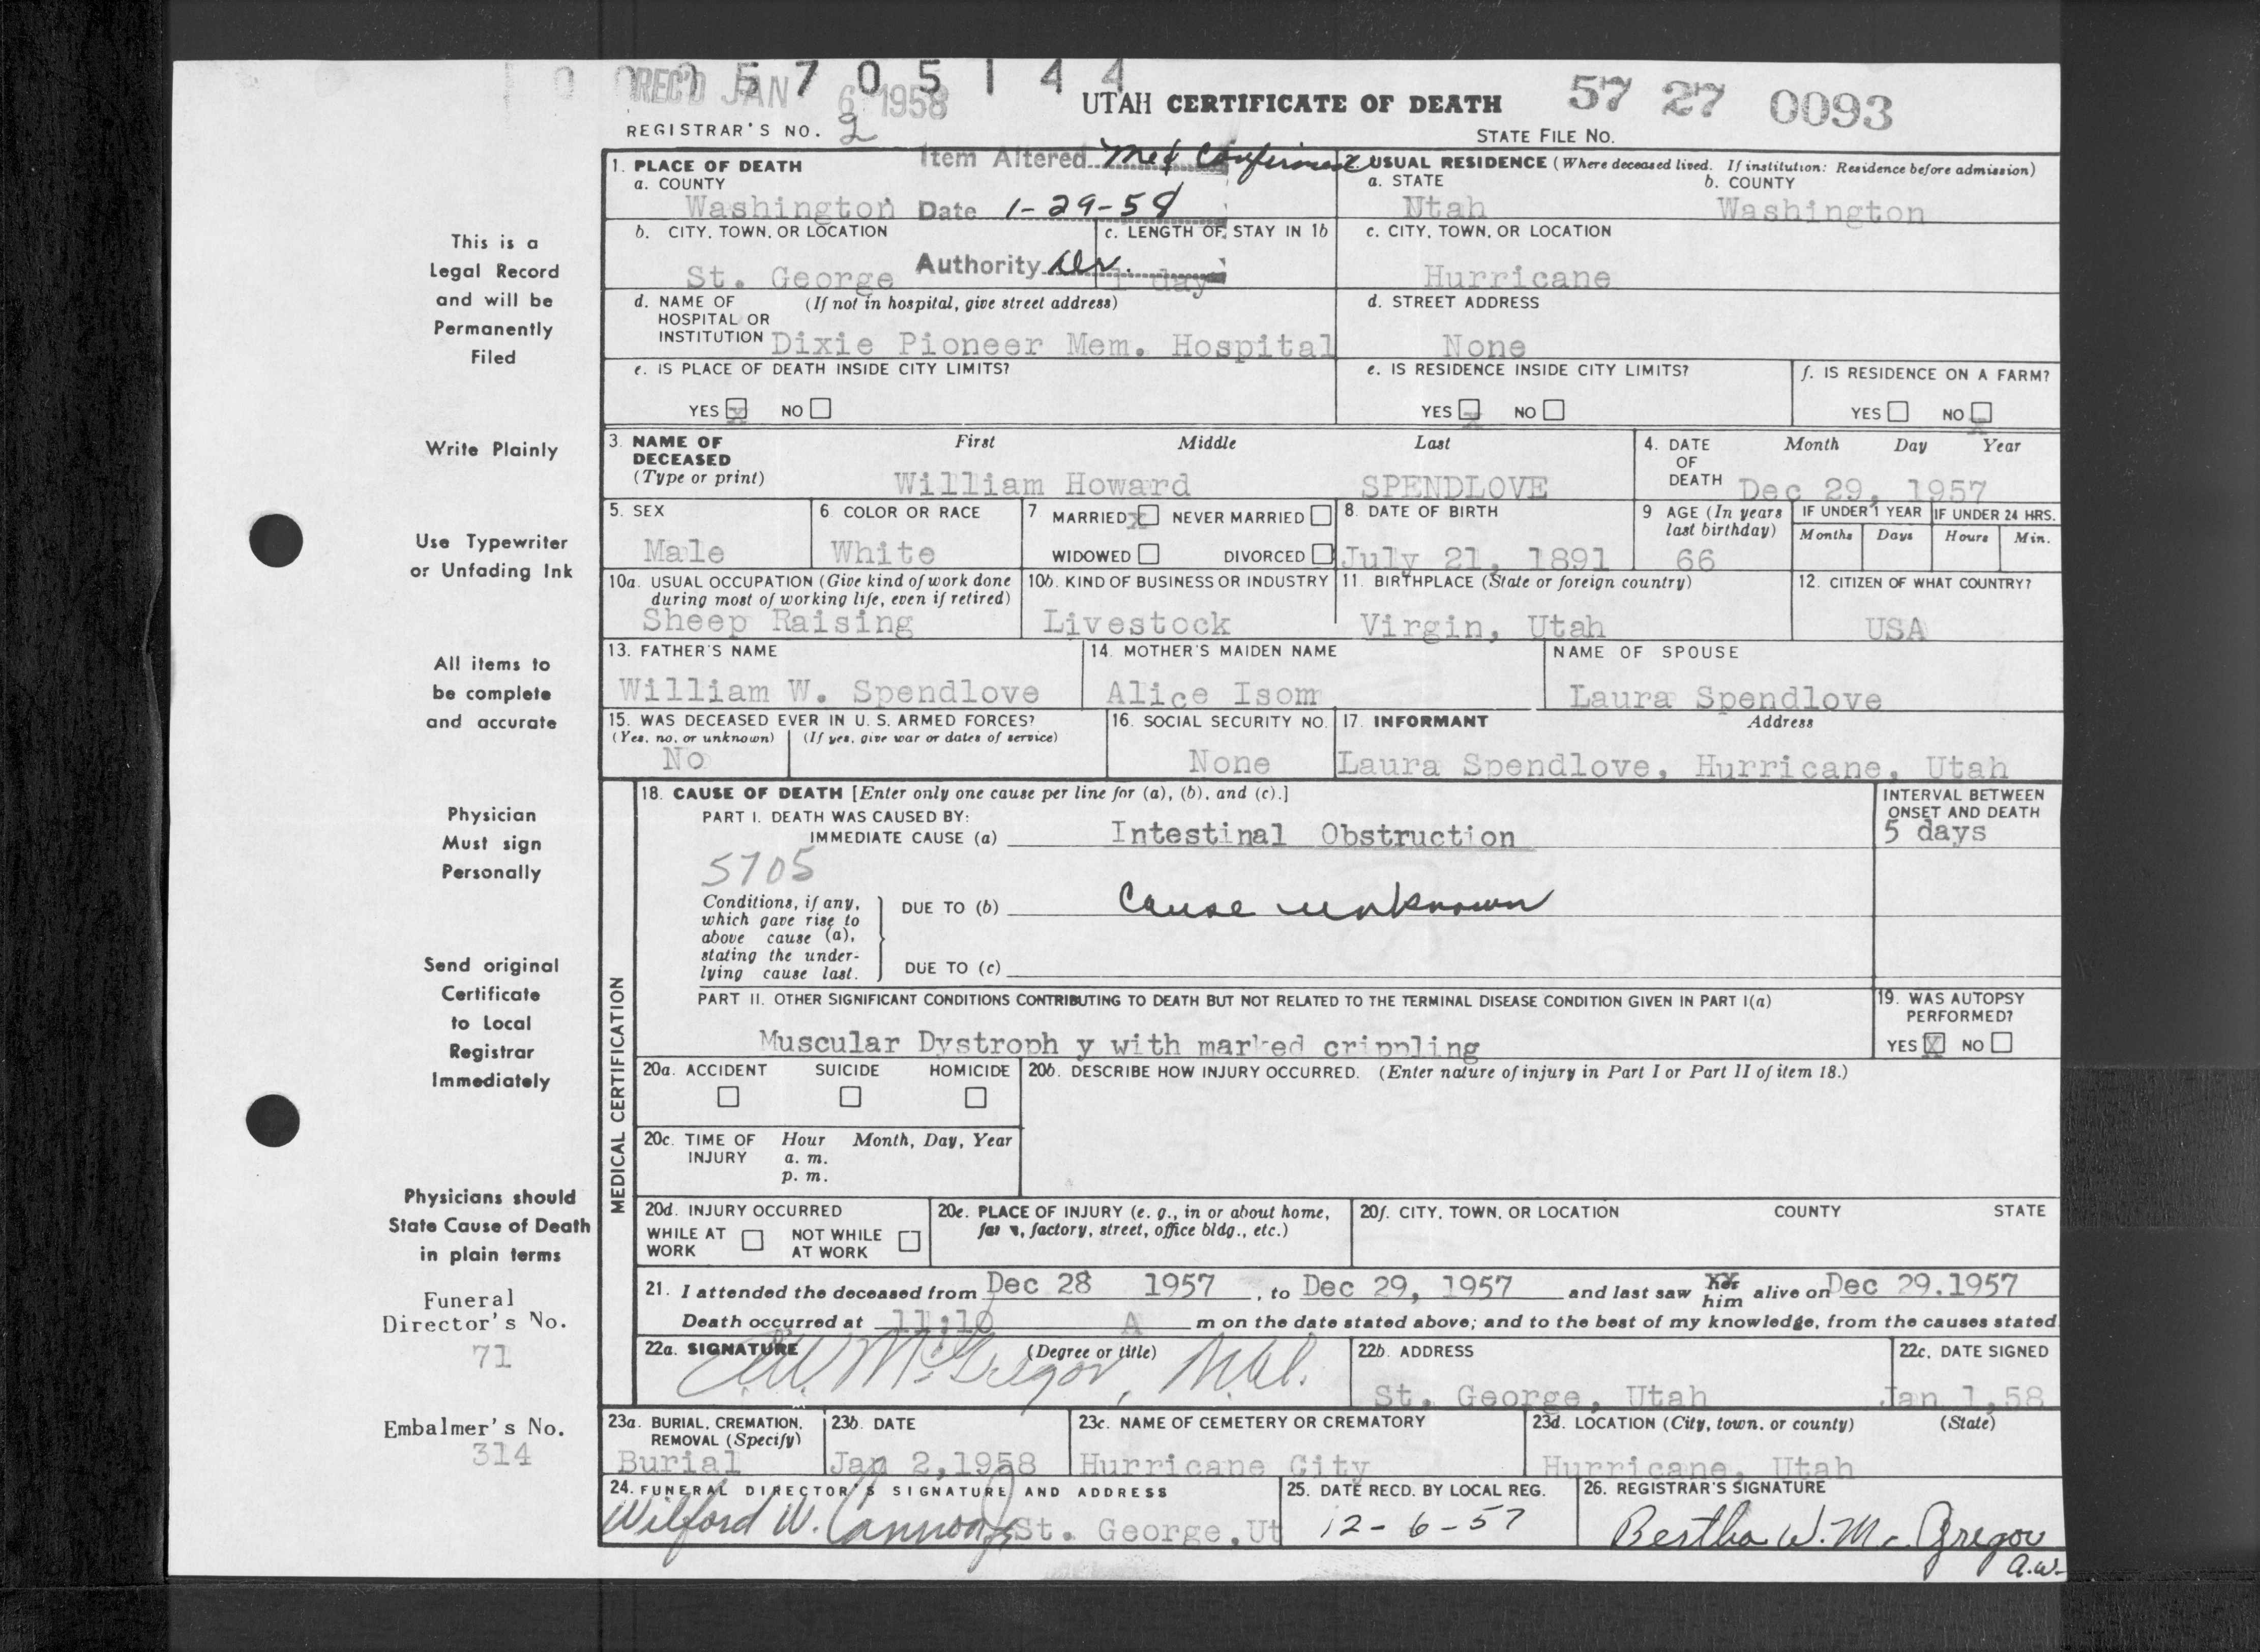 1 0 0 5 7 0 5 1 4 4
REC'D JAN 6 1958
UTAH CERTIFICATE OF DEATH
57 27 0093
REGISTRAR'S NO. 2
STATE FILE NO.
Item Altered Med Confirmed
1. PLACE OF DEATH
a. COUNTY
Washington
Date 1-29-58
2. USUAL RESIDENCE (Where deceased lived. If institution: Residence before admission)
a. STATE b. COUNTY
Utah Washington
b. CITY, TOWN, OR LOCATION c. LENGTH OF STAY IN 1b
St. George Authority Dr. 1 day
c. CITY, TOWN, OR LOCATION
Hurricane
d. NAME OF (If not in hospital, give street address)
HOSPITAL OR
INSTITUTION Dixie Pioneer Mem. Hospital
d. STREET ADDRESS
None
e. IS PLACE OF DEATH INSIDE CITY LIMITS?
YES X NO
e. IS RESIDENCE INSIDE CITY LIMITS?
YES X NO
f. IS RESIDENCE ON A FARM?
YES NO X
3. NAME OF DECEASED (Type or print) First Middle Last
William Howard SPENDLOVE
4. DATE OF DEATH Month Day Year
Dec 29, 1957
5. SEX
Male
6. COLOR OR RACE
White
7 MARRIED X NEVER MARRIED
WIDOWED DIVORCED
8. DATE OF BIRTH
July 21, 1891
9 AGE (In years last birthday)
66
IF UNDER 1 YEAR IF UNDER 24 HRS.
Months Days Hours Min.
10a. USUAL OCCUPATION (Give kind of work done
during most of working life, even if retired)
Sheep Raising
10b. KIND OF BUSINESS OR INDUSTRY
Livestock
11. BIRTHPLACE (State or foreign country)
Virgin, Utah
12. CITIZEN OF WHAT COUNTRY?
USA
13. FATHER'S NAME
William W. Spendlove
14. MOTHER'S MAIDEN NAME
Alice Isom
NAME OF SPOUSE
Laura Spendlove
15. WAS DECEASED EVER IN U. S. ARMED FORCES?
(Yes, no, or unknown) (If yes, give war or dates of service)
No
16. SOCIAL SECURITY NO.
None
17. INFORMANT Address
Laura Spendlove, Hurricane, Utah
MEDICAL CERTIFICATION
18. CAUSE OF DEATH [Enter only one cause per line for (a), (b), and (c).]
PART I. DEATH WAS CAUSED BY:
IMMEDIATE CAUSE (a) Intestinal Obstruction
INTERVAL BETWEEN
ONSET AND DEATH
5 days
5705
Conditions, if any,
which gave rise to
above cause (a),
stating the under-
lying cause last.
DUE TO (b) Cause unknown
DUE TO (c)
PART II. OTHER SIGNIFICANT CONDITIONS CONTRIBUTING TO DEATH BUT NOT RELATED TO THE TERMINAL DISEASE CONDITION GIVEN IN PART I(a)
Muscular Dystroph y with marked crippling
19. WAS AUTOPSY
PERFORMED?
YES X NO
20a. ACCIDENT SUICIDE HOMICIDE
20b. DESCRIBE HOW INJURY OCCURRED. (Enter nature of injury in Part I or Part II of item 18.)
20c. TIME OF INJURY Hour Month, Day, Year
a. m.
p. m.
20d. INJURY OCCURRED
WHILE AT WORK NOT WHILE AT WORK
20e. PLACE OF INJURY (e. g., in or about home,
farm, factory, street, office bldg., etc.)
20f. CITY, TOWN, OR LOCATION COUNTY STATE
21. I attended the deceased from Dec 28 1957, to Dec 29, 1957 and last saw her him alive on Dec 29.1957
Death occurred at 11:10 A m on the date stated above; and to the best of my knowledge, from the causes stated
22a. SIGNATURE (Degree or title)
McGregor, M.D.
22b. ADDRESS
St. George, Utah
22c. DATE SIGNED
Jan 1,58
23a. BURIAL, CREMATION,
REMOVAL (Specify)
Burial
23b. DATE
Jan 2,1958
23c. NAME OF CEMETERY OR CREMATORY
Hurricane City
23d. LOCATION (City, town, or county) (State)
Hurricane, Utah
24. FUNERAL DIRECTOR'S SIGNATURE AND ADDRESS
Wilford W. Cannon St. George,Ut
25. DATE RECD. BY LOCAL REG.
12-6-57
26. REGISTRAR'S SIGNATURE
Bertha W. McGregor
a.w.
This is a
Legal Record
and will be
Permanently
Filed
Write Plainly
Use Typewriter
or Unfading Ink
All items to
be complete
and accurate
Physician
Must sign
Personally
Send original
Certificate
to Local
Registrar
Immediately
Physicians should
State Cause of Death
in plain terms
Funeral
Director's No.
71
Embalmer's No.
314